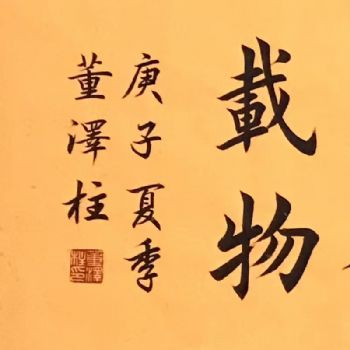 載物
庚子夏季
董澤柱